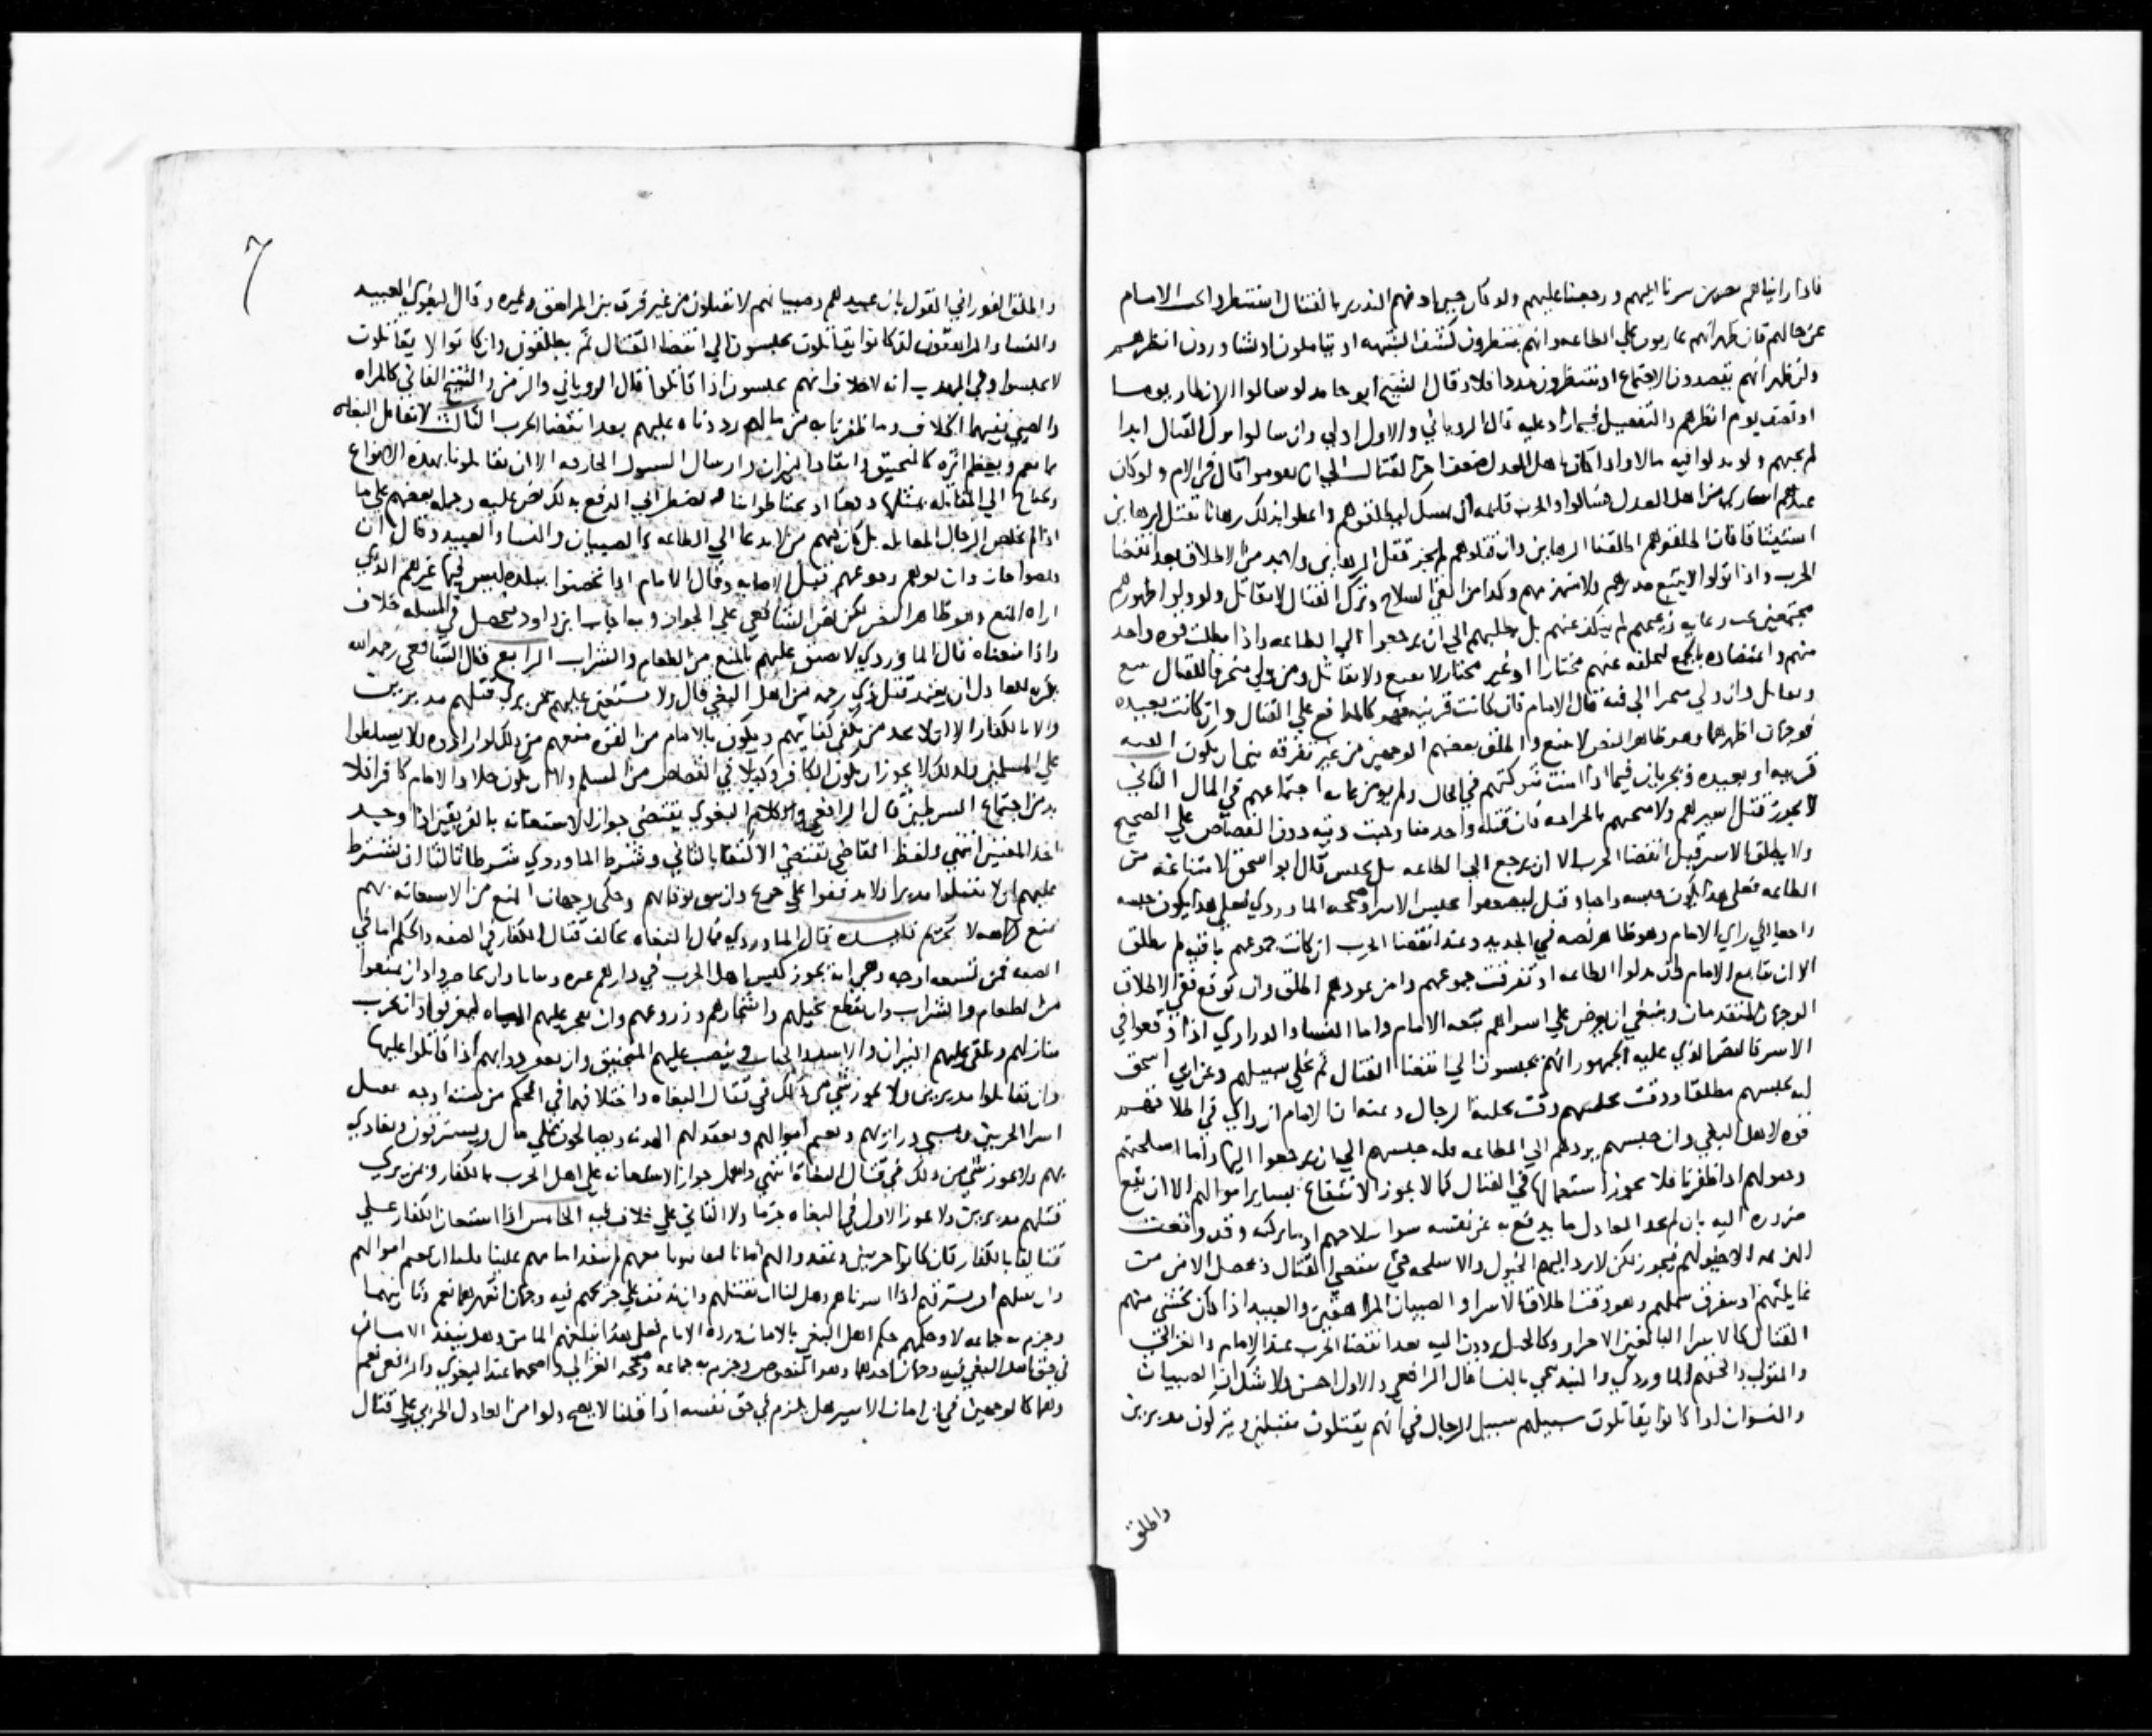 فاذا رايناهم سرنا اليهم ورجعنا عليهم ولو كان بالقتال الامام
عن حالهم فان ظهر انهم على الطاعه وانهم ينتظرون كشف الشبهه او يتاملون او يتشاورون انظرهم
وان ظهر انهم يقصدون الاجتماع او ينتظرون مددا فلا وقال الشيخ ابو حامد لو سالوا الانظار يوما
او نصف يوم انظرهم والتفصيل فيما زاد عليه قال الروياني والاول اولى وان سالوا القتال ابدا
لم يجبهم ولو بذلوا فيه مالا واذا كان باهل العدل ضعف اخر القتال الى ان قال في الام ولو كان
عندهم اسارى من اهل العدل فسالوا والحرب قايمه ان ليطلقوهم واعطوا بذلك رهاينا تقبل الرهاين
استيثاقا فان اطلقوهم اطلقنا الرهاين وان قتلوهم لم يجز قتل الرهاين ولا بد من الاطلاق بعد انقضا
الحرب واذا تولوا لا يتبع مدبرهم ولا منهزمهم وكذا من القى السلاح وترك القتال لا يقاتل ولو ولوا ظهورهم
مجتمعين تحت رايه زعيمهم لم ينكف عنهم بل يطلبهم الى ان يرجعوا الى الطاعه واذا بطلت قوه واحد
منهم واعتضاده بالجمع لتخلفه عنهم مختارا او غير مختار لا يتبع ولا يقاتل ومن ولى متحرفا للقتال يتبع
ويقاتل وان ولى متحيزا الى فئه قال الامام فان كانت قريبه فهو كالمدافع على القتال وان كانت بعيده
فوجهان اظهرهما وهو ظاهر النص لا يتبع واطلق بعضهم الوجهين من غير تفرقه بين ان يكون الفئه
قريبه او بعيده ويجريان فيما اذا امنت شوكتهم في الحال ولم يومن اجتماعهم في المال الثاني
لا يجوز قتل اسيرهم ولا فان قتله واحد منا وجبت ديته دون القصاص على الصحيح
ولا يطلق الاسير قبل انقضا الحرب الا ان يرجع الى الطاعه بل يحبس قال ابو اسحق لامتناعه من
الطاعه فعلى هذا يكون حبسه واجبا وقيل يحبس الاسرا وصححه الماوردي فعلى هذا يكون حبسه
راجعا الى راي الامام وهو ظاهر نصه في الجديد وعند انقضا الحرب ان كانت جموعهم باقيه لم يطلق
الا ان يبايع الامام فان بذلوا الطاعه او تفرقت جموعهم وامن عودهم اطلق وان توقع ففي الاطلاق
الوجهان المتقدمان وينبغي ان يعرض على اسراهم بيعه الامام واما النسا والذراري اذا وقعوا في
الاسر فالنص الذي عليه الجمهور انهم يحبسون الى انقضا القتال ثم يخلى سبيلهم وعن ابي اسحق
انه يحبسهم مطلقا ووقت تخليتهم وقت تخلية الرجال وعنه ان الامام ان راى في اطلاقهم
قوه لاهل البغي وان حبسهم يردهم الى الطاعه فله حبسهم الى ان يرجعوا اليها واما اسلحتهم
وخيولهم اذا ظفرنا فلا يجوز استعمالها في القتال كما لا يجوز الانتفاع بساير اموالهم الا ان يقع
ضروره اليه بان لم يجد العادل ما يدفع به عن نفسه سوا سلاحهم او ما يركبه وقد وقعت
الهزيمه الا خيولهم فيجوز لكن لا يرد اليهم الخيول والاسلحه حتى ينقضي القتال ويحصل الامن من
غايلتهم او يتفرق شملهم وهو وقت اطلاق الاسرا والصبيان المراهقين والعبيد اذا كان يخشى منهم
القتال كالاسرا البالغين الاحرار وكالخيل يردون اليه بعد انقضا الحرب عند الامام والغزالي
والمتولي والحقهم الماوردي والبندنيجي بالنسا قال الرافعي والاول احسن ولا شك ان الصبيان
والنسوان اذا كانوا يقاتلون سبيلهم سبيل الرجال في انهم يقتلون مقبلين ويتركون مدبرين
واطلق
٦
واطلق الفوراني القول بان عبيدهم وصبيانهم لا يقتلون من غير فرق بين المراهق وغيره وقال البغوي العبيد
والنسا والمراهقون ان كانوا يقاتلون يحبسون الى انقضا القتال ثم يطلقون وان كانوا لا يقاتلون
لا يحبسوا وفي المهذب انه لا خلاف انهم يحبسون اذا قاتلوا قال الروياني والزمن والشيخ الفاني كالمراه
والصبي ففيهما الخلاف وما ظفرنا به من مالهم رددناه عليهم بعد انقضا الحرب الثالث لا تقاتل البغاه
بما يعم ويعظم اثره كالمنجنيق وايقاد النيران وارسال السيول الجارفه الا ان يقاتلونا بهذه الانواع
ويحتاج الى المقابله بمثلها دفعا او يحتاطوا بنا ونضطر الى الدفع بذلك نص عليه وحمله بعضهم على ما
اذا لم يخلص الرجال المقاتله بل كان فيهم من لا يدعا الى الطاعه كالصبيان والنسا والعبيد وقال ان
قبل الاصابه وقال الامام اذا تحصنوا ببلده ليس فيها غيرهم الذي
اراه المنع وهو ظاهر النص لكن نص الشافعي على الجواز وبه اجاب ابن داود فيحصل في المسله خلاف
واذا منعناه قال الماوردي لا يضيق عليهم بالمنع من الطعام والشراب الرابع قال الشافعي رحمه الله
يكره للعادل ان يتعمد قتل ذي رحمه من اهل البغي قال ولا يستعين عليهم بمن يرى قتلهم مدبرين
ولا بالكفار الا ان لا يجد من يكفي كفايتهم ويكون بالامام من القوه منعهم من ذلك لو ارادوه ولا يسلطوا
على المسلمين ولذلك لا يجوز ان يكون الكافر وكيلا في القصاص من المسلم ولا ان يكون جلاد الامام كافرا فلا
بد من اجتماع الشرطين قال الرافعي وكلام البغوي يقتضي جواز الاستعانه بالفريقين اذا وجد
احد المعنيين انتهى ولفظ القاضي يقتضي الاكتفا بالثاني وشرط الماوردي شرطا ثالثا ان يشترط
عليهم ان لا يقتلوا مدبرا ولا يذففوا على جريح وان يثق بوفائهم وحكى وجهان المنع من الاستعانه بهم
منع كراهه لا تحريم فايده قال الماوردي قتال البغاه مخالف قتال الكفار في الصفه والحكم اما في
الصفه فمن تسعه اوجه وهي انه يجوز كبس اهل الحرب في دارهم غره وبياتا وان يحاصروا وان يمنعوا
من الطعام والشراب وان تقطع نخيلهم واشجارهم وزروعهم وان يجر عليهم المياه ليغرقوا وان يخرب
منازلهم ويلقى عليهم النيران والافاعي والحيات وينصب عليهم المنجنيق وان يعقر دوابهم اذا قاتلوا عليها
وان يقاتلوا مدبرين ولا يجوز شي من ذلك في قتال البغاه واختلافهما في الحكم من سته اوجه يقتل
اسرا الحربيين وتسبى ذراريهم وتغنم اموالهم ويعقد لهم الهدنه ويصالحون على مال ويسترقون ويفادي
بهم ولا يجوز شي من ذلك في قتال البغاه انتهى واهمل جواز الاستعانه على اهل الحرب بالكفار وبمن يرى
قتلهم مدبرين ولا يجوز الاول في البغاه جزما ولا الثاني على خلاف فيه الخامس اذا استعان الكفار على
قتالنا بالكفار فان كانوا حربيين وعقدوا لهم امانا ليقاتلونا معهم لم ينفذ امانهم علينا فلنا ان نغنم اموالهم
وان نقتلهم او نسترقهم اذا اسرناهم وهل لنا ان نقتلهم وان نذفف على جريحهم فيه وجهان اشهرهما نعم وثانيهما
وجزم به جماعه لا وحكمهم حكم اهل البغي بالامان ورده الامام فعلى هذا نبلغهم المامن وهل ينفذ الامان
في حق اهل البغي فيه وجهان احدهما وهو المنصوص وجزم به جماعه وصححه الغزالي واصحهما عند البغوي والرافعي نعم
وهما كالوجهين في ان امان الاسير هل يلزم في حق نفسه اذا قلنا لا يصح ولو امن العادل الحربي على قتال